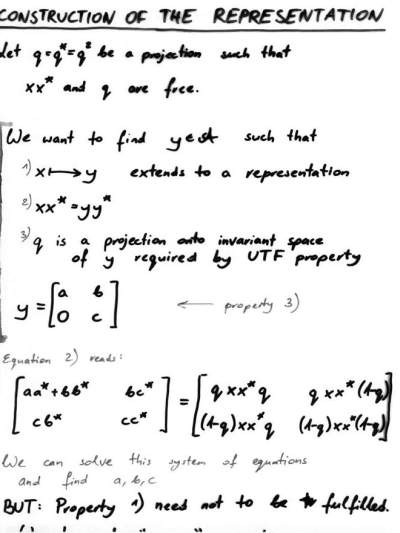 CONSTRUCTION OF THE REPRESENTATION
Let q=q*=q² be a projection such that
xx* and q are free.
We want to find y∈A such that
1) x⟼y extends to a representation
2) xx* = yy*
3) q is a projection onto invariant space
of y required by UTF property
y = [a b; 0 c] ← property 3)
Equation 2) reads:
[aa*+bb* bc*; cb* cc*] = [q xx* q q xx* (1-q); (1-q) xx* q (1-q) xx* (1-q)]
We can solve this system of equations
and find a, b, c
BUT: Property 1) need not to be fulfilled.